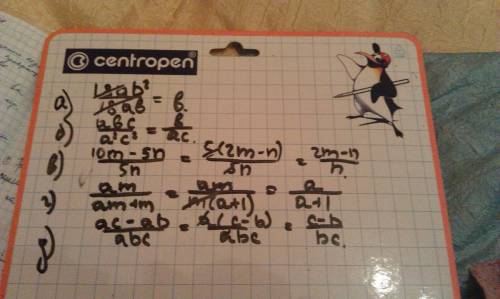 centropen
а) 18ab²/18ab = b.
б) abc/a²c² = b/ac.
в) 10m-5n/5n = 5(2m-n)/5n = 2m-n/n.
г) am/am+m = am/m(a+1) = a/a+1
д) ac-ab/abc = a(c-b)/abc = c-b/bc.